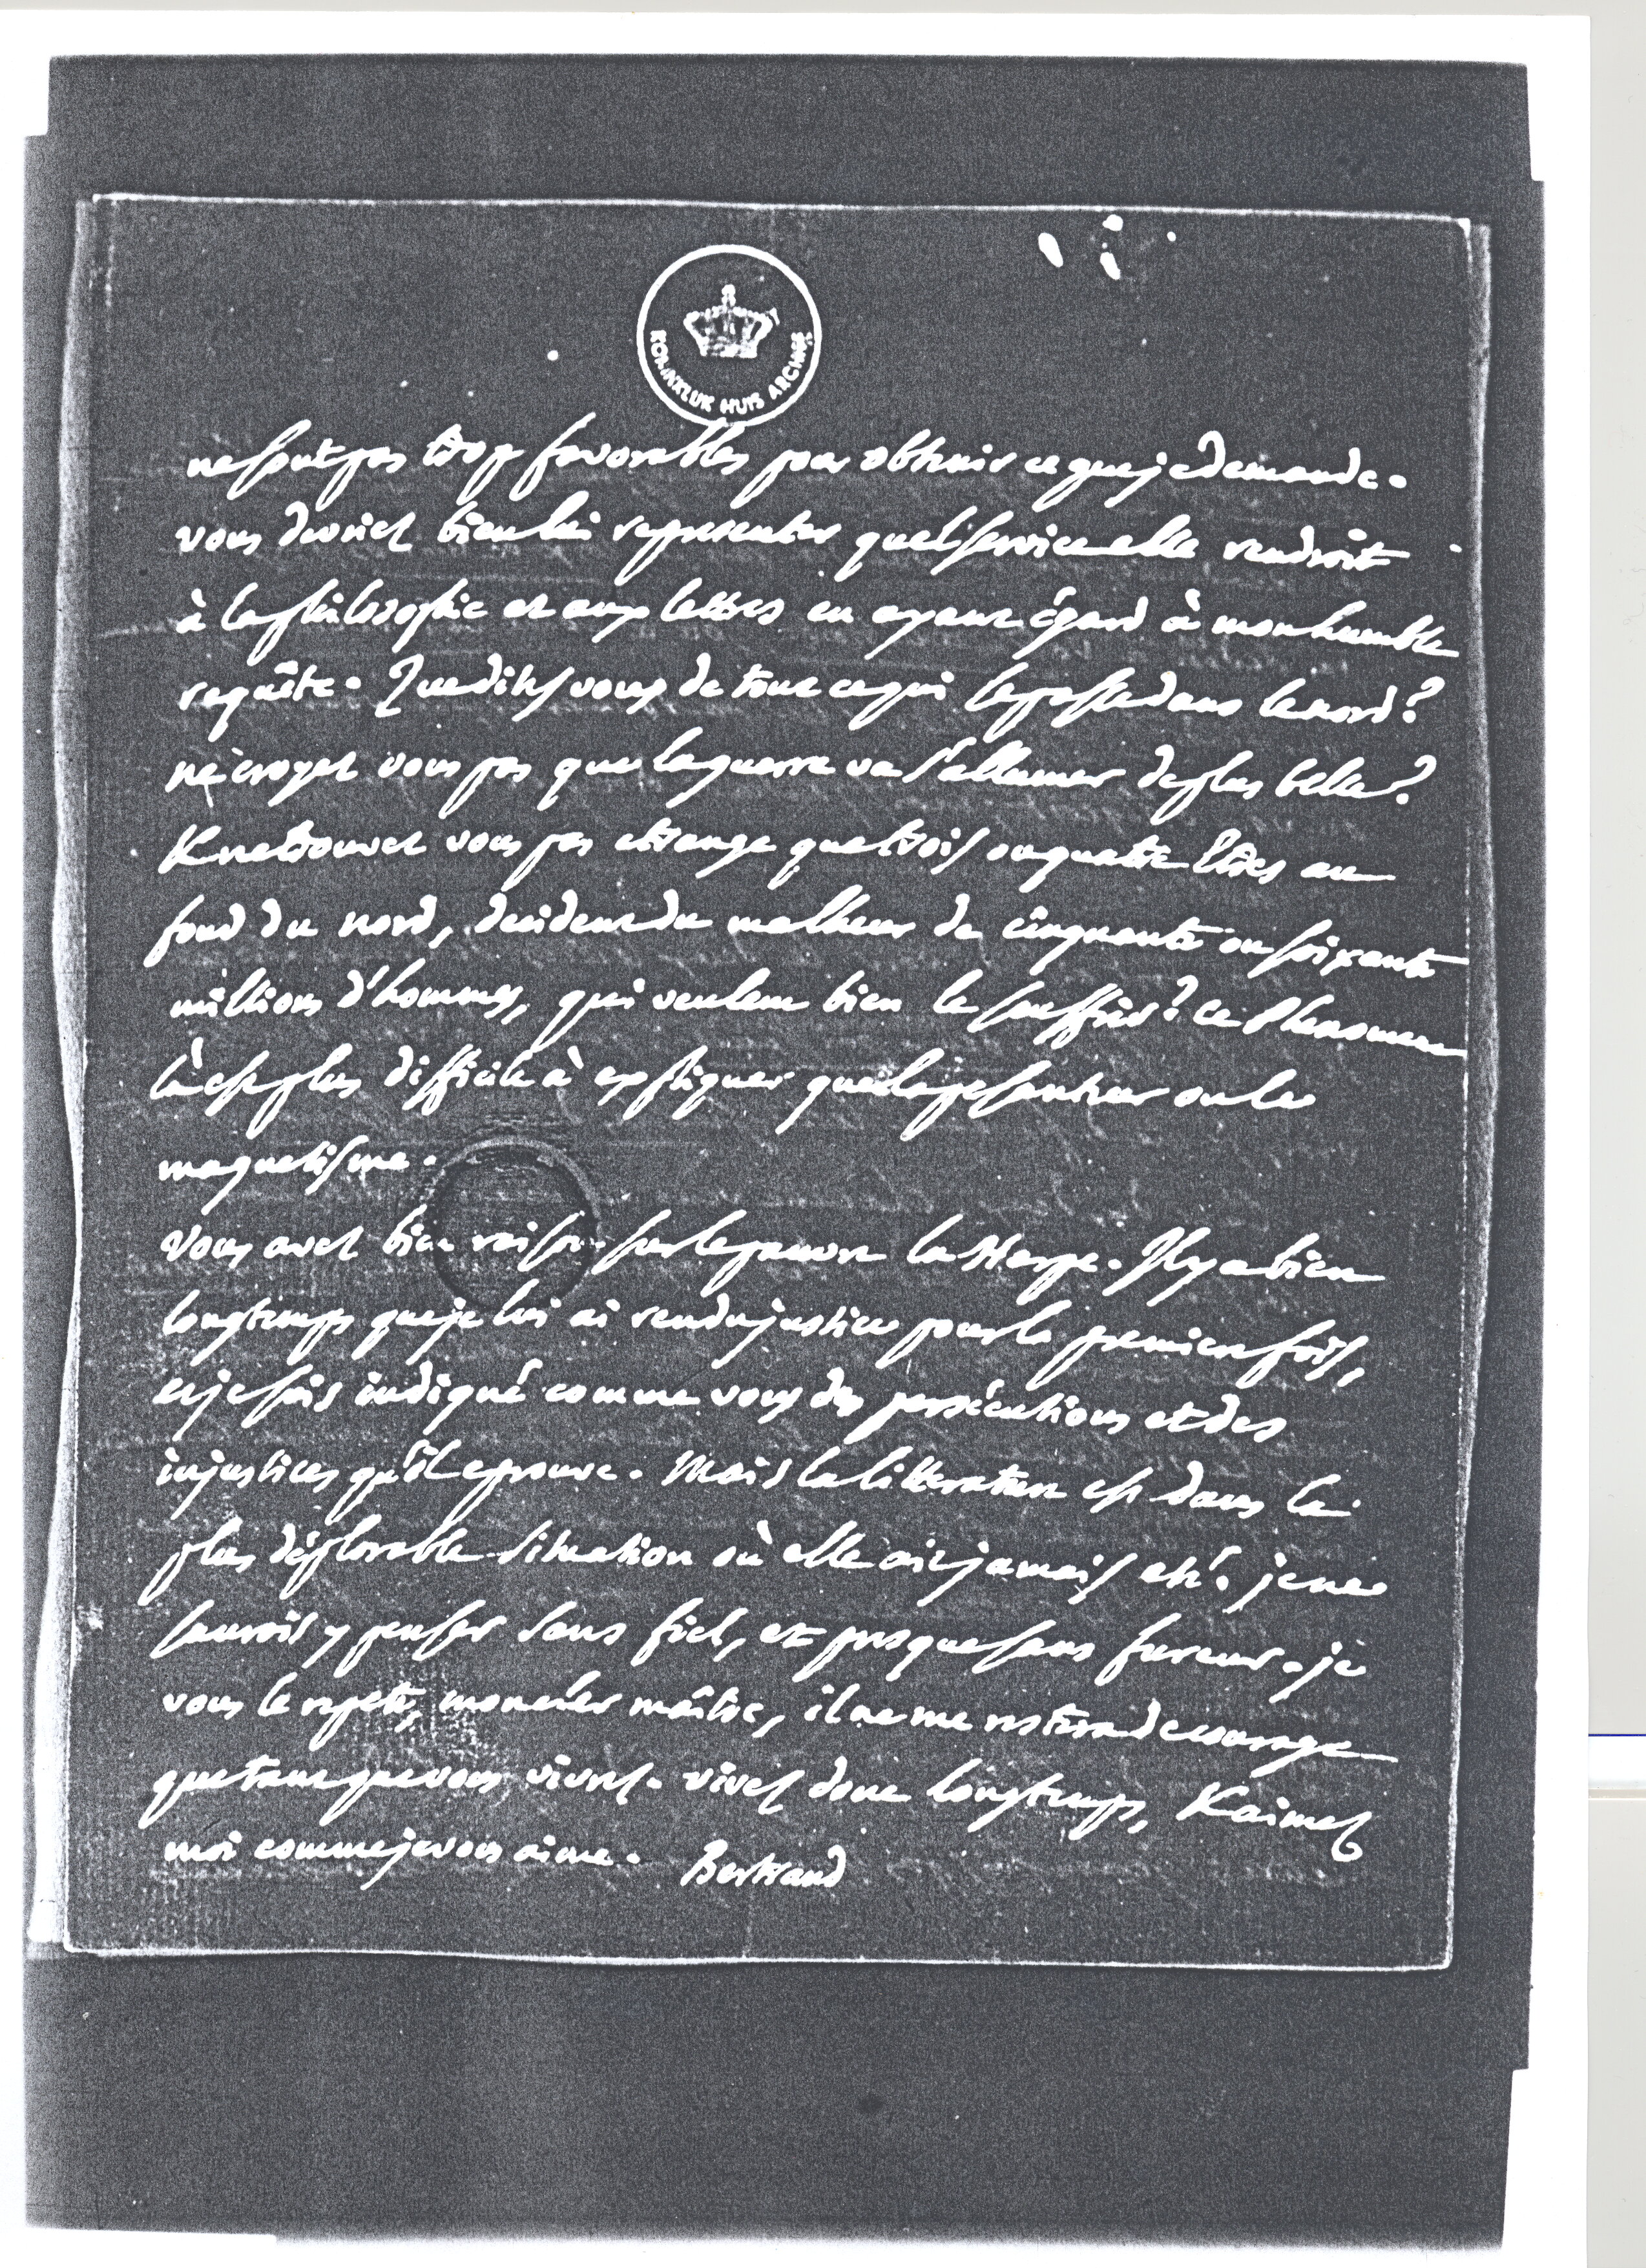 KONINKLIJK HUIS ARCHIEF
ne sont pas trop favorables pour obtenir ce que je demande.
vous devriez bien lui representer quel service elle rendroit
à la philosophie et aux lettres en ayant égard à mon humble
requête. Que dites vous de tout ce qui se passe dans le nord?
ne croyez vous pas que la guerre va s'allumer de plus belle?
& ne trouvez vous pas etrange que trois ou quatre Etres au
fond du nord, decident du malheur de cinquante ou soixante
millions d'hommes, qui veulent bien le souffrir? ce Phenomene
là est plus difficile à expliquer que la pesanteur ou le
magnetisme.
Vous avez bien raison sur le pauvre la Harpe. Il y a bien
longtemps que je lui ai rendu justice pour la premiere fois,
et je suis indigné comme vous des persécutions et des
injustices qu'il eprouve. Mais la litterature est dans la
plus déplorable situation où elle ait jamais eté. je ne
saurois y penser sans fiel, et presque sans fureur. je
vous le repete, mon cher maître, il ne me restera de courage
que tant que vous vivrez. vivez donc longtemps, & aimez
moi comme je vous aime. Bertrand